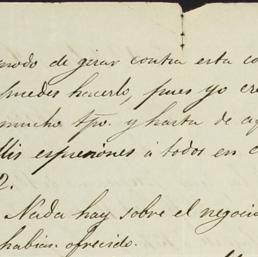 modo de girar contra esta co
puedes hacerlo, pues yo cre
mucho tpo. y hasta de aq
Mis espresiones á todos en c
2.
Nada hay sobre el negocio
habian ofrecido.